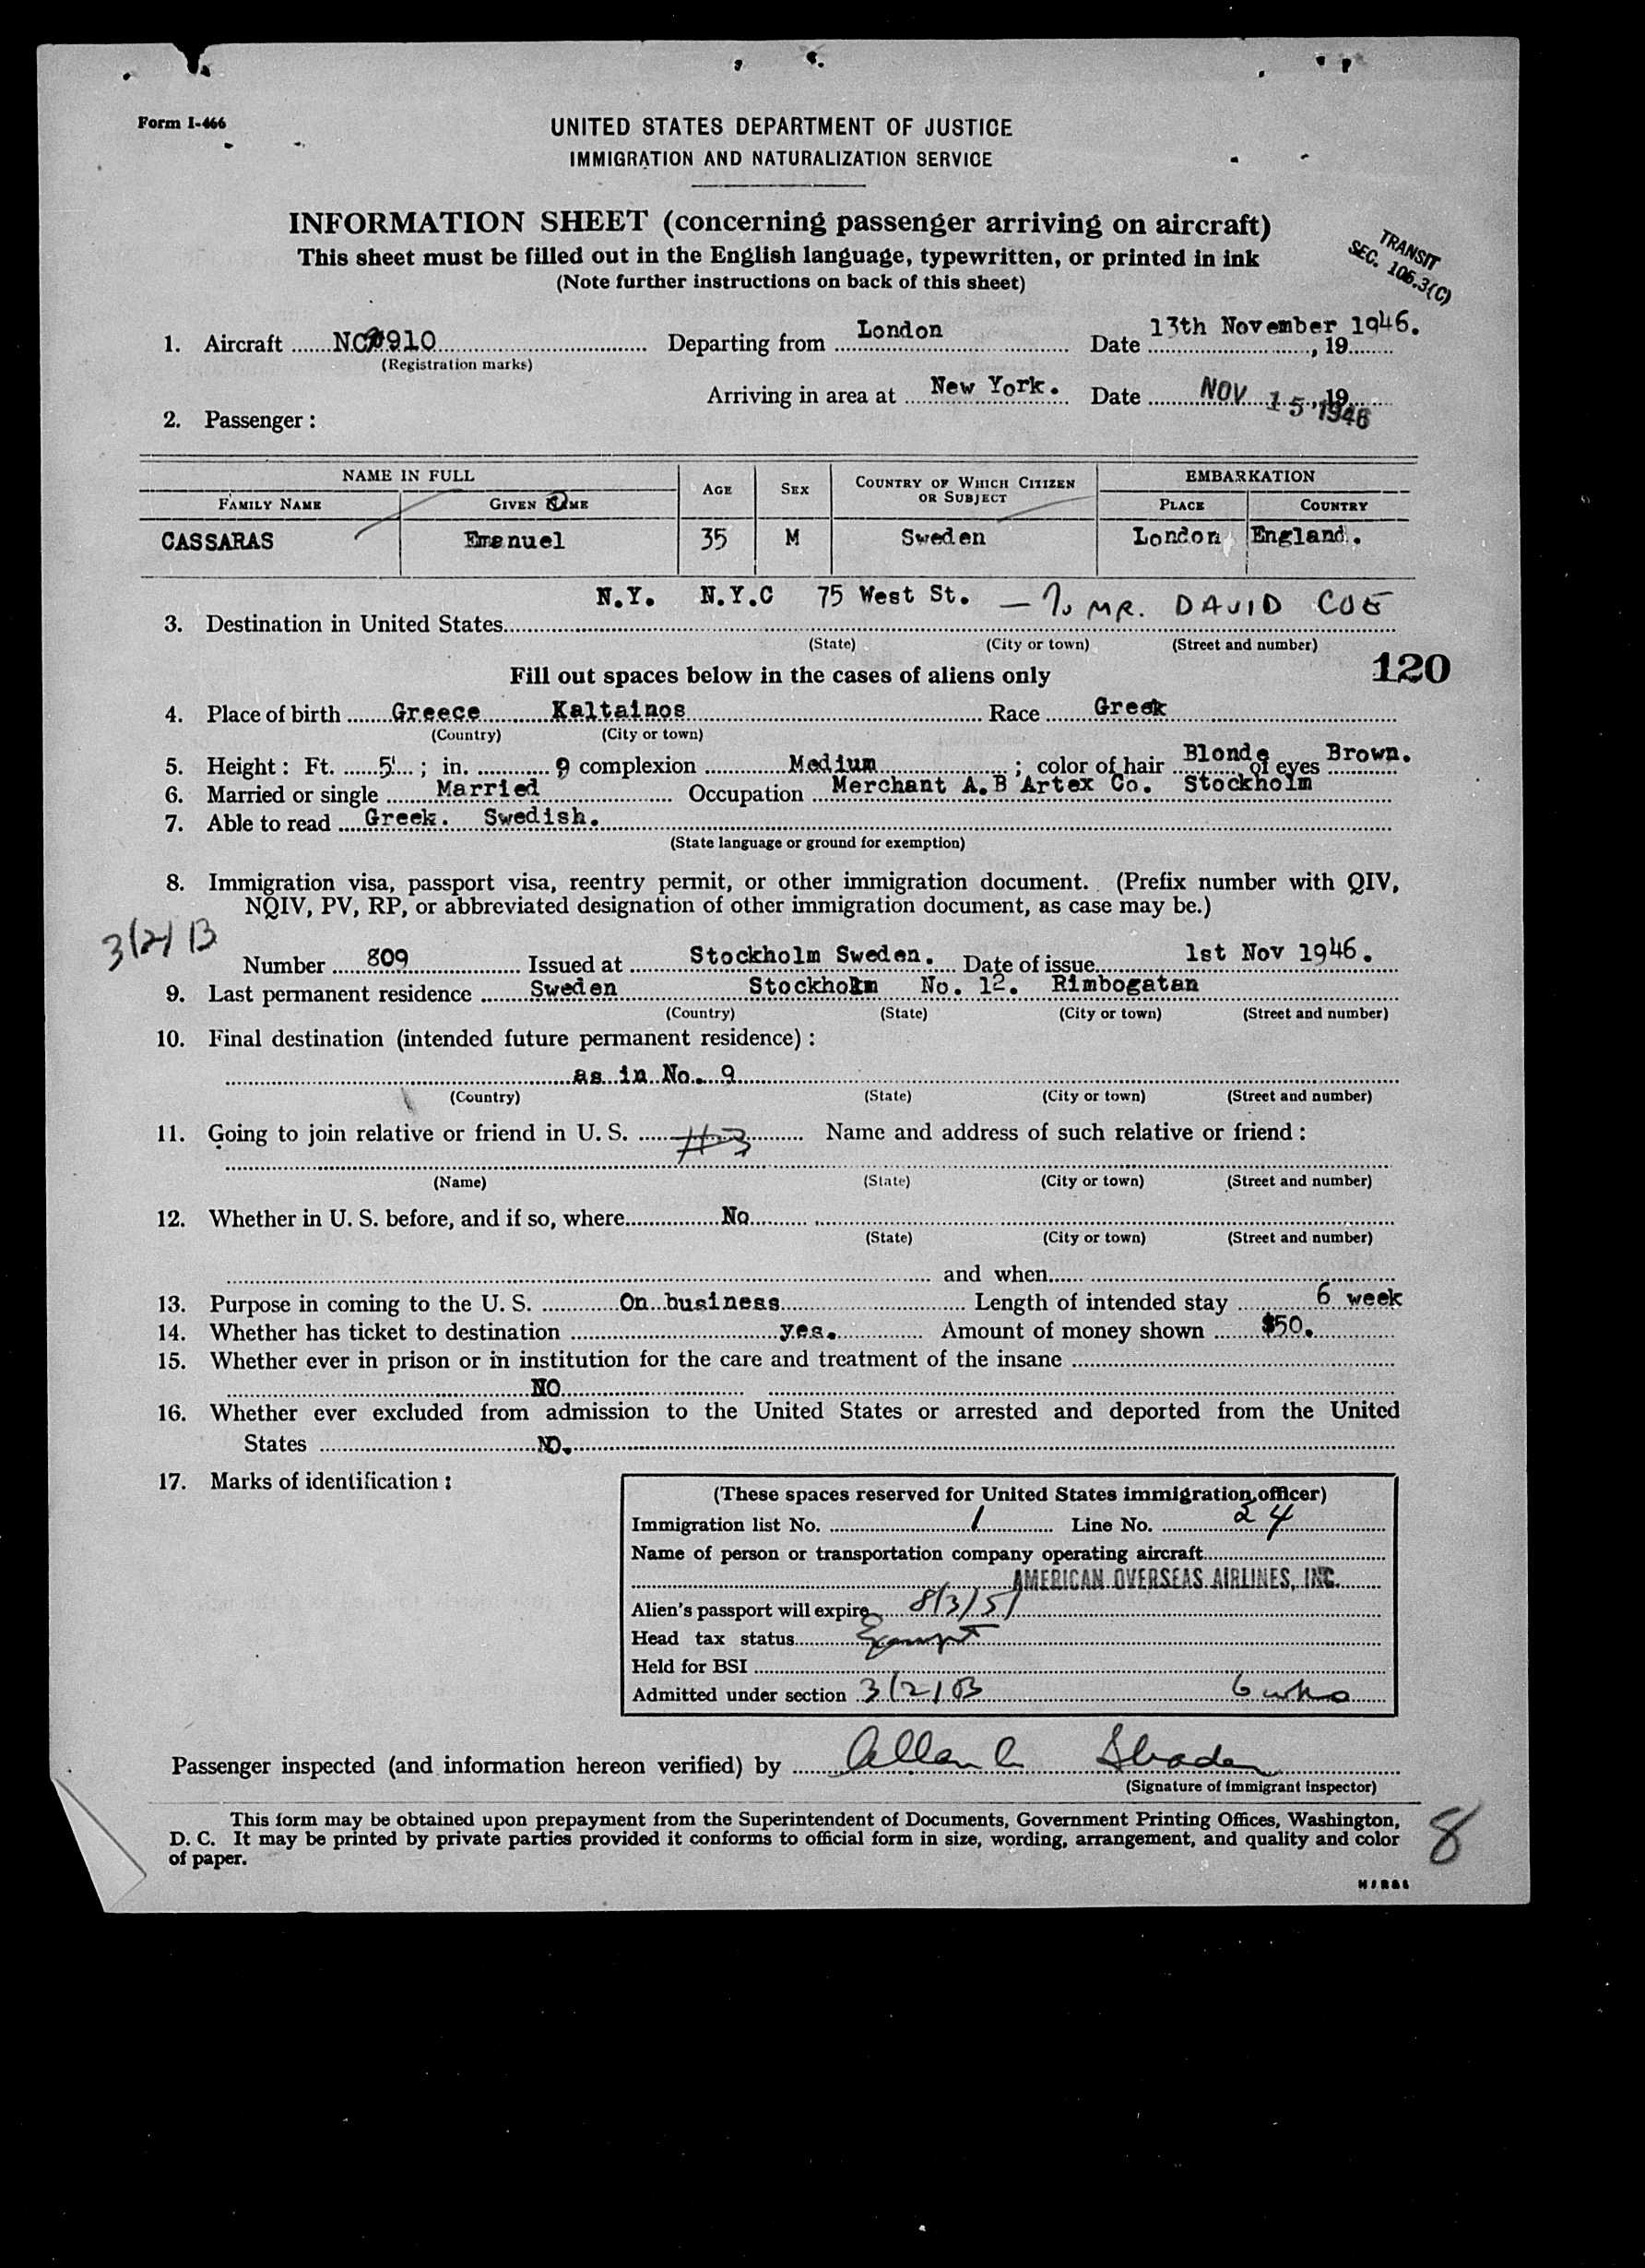 Form I-466
UNITED STATES DEPARTMENT OF JUSTICE
IMMIGRATION AND NATURALIZATION SERVICE
INFORMATION SHEET (concerning passenger arriving on aircraft)
This sheet must be filled out in the English language, typewritten, or printed in ink
(Note further instructions on back of this sheet)
TRANSIT
SEC. 106.3(C)
1. Aircraft Departing from London Date 13th November 1946. , 19
(Registration marks)
Arriving in area at New York. Date NOV 15 1946, 19
2. Passenger :
NAME IN FULL AGE SEX COUNTRY OF WHICH CITIZEN OR SUBJECT EMBARKATION
FAMILY NAME GIVEN NAME PLACE COUNTRY
CASSARAS Emanuel 35 M Sweden London England.
N.Y. N.Y.C 75 West St. — To MR. DAVID COE
3. Destination in United States
(State) (City or town) (Street and number)
Fill out spaces below in the cases of aliens only 120
4. Place of birth Greece Kaltainos Race Greek
(Country) (City or town)
5. Height : Ft. 5' ; in. 9 complexion Medium ; color of hair Blonde of eyes Brown.
6. Married or single Married Occupation Merchant A.B Artex Co. Stockholm
7. Able to read Greek. Swedish.
(State language or ground for exemption)
8. Immigration visa, passport visa, reentry permit, or other immigration document. (Prefix number with QIV,
NQIV, PV, RP, or abbreviated designation of other immigration document, as case may be.)
3(2) B
Number 809 Issued at Stockholm Sweden. Date of issue 1st Nov 1946.
9. Last permanent residence Sweden Stockholm No. 12. Rimbogatan
(Country) (State) (City or town) (Street and number)
10. Final destination (intended future permanent residence) :
as in No. 9
(Country) (State) (City or town) (Street and number)
11. Going to join relative or friend in U. S. #3 Name and address of such relative or friend :
(Name) (State) (City or town) (Street and number)
12. Whether in U. S. before, and if so, where No
(State) (City or town) (Street and number)
and when
13. Purpose in coming to the U. S. On business Length of intended stay 6 week
14. Whether has ticket to destination yes. Amount of money shown $50.
15. Whether ever in prison or in institution for the care and treatment of the insane
NO
16. Whether ever excluded from admission to the United States or arrested and deported from the United
States NO.
17. Marks of identification :
(These spaces reserved for United States immigration officer)
Immigration list No. 1 Line No. 24
Name of person or transportation company operating aircraft
AMERICAN OVERSEAS AIRLINES, INC.
Alien's passport will expire 8/3/51
Head tax status Exempt
Held for BSI
Admitted under section 3(2)B 6 wks
Passenger inspected (and information hereon verified) by Allan C
(Signature of immigrant inspector)
This form may be obtained upon prepayment from the Superintendent of Documents, Government Printing Offices, Washington,
D. C. It may be printed by private parties provided it conforms to official form in size, wording, arrangement, and quality and color
of paper.
8